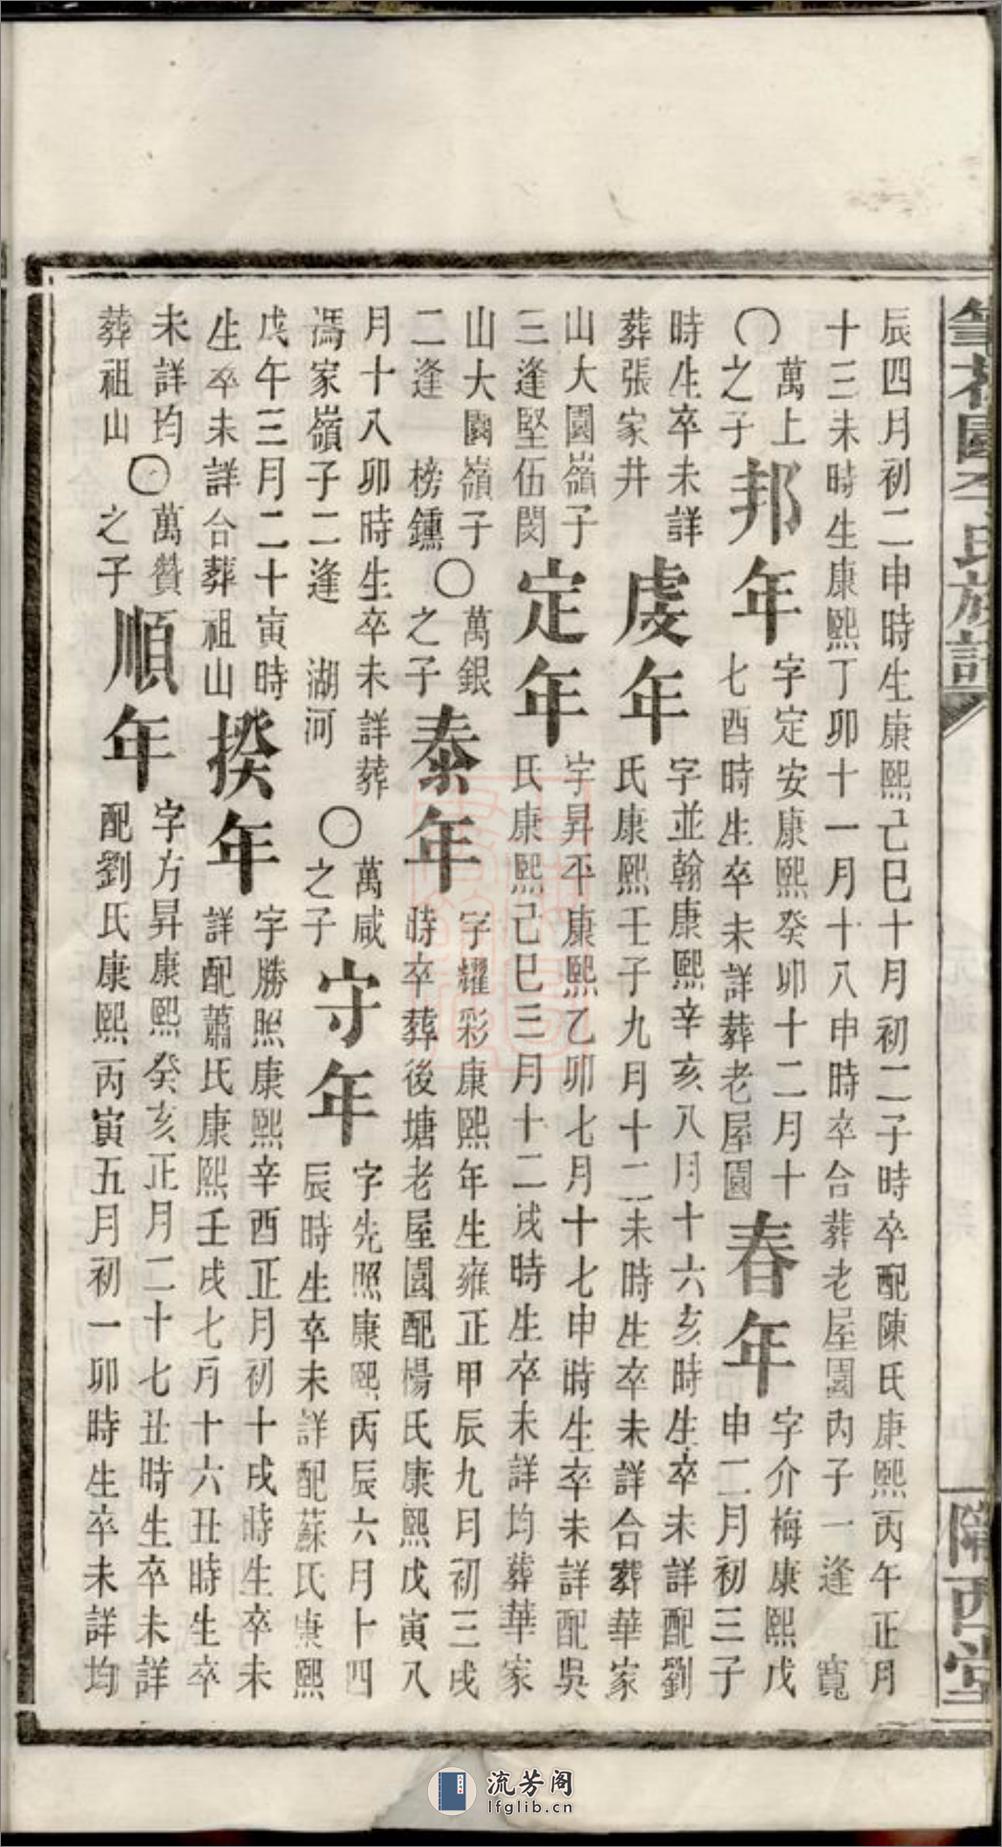 隴西堂
辰四月初二申時生康熙己巳十月初二子時卒配陳氏康熙丙午正月
十三未時生康熙丁卯十一月十八申時卒合葬老屋園內子一逢 寬
〇萬上之子
邦年
字定安康熙癸卯十二月十
七酉時生卒未詳葬老屋園
春年
字介梅康熙戊
申二月初三子
時生卒未詳
葬張家井
虔年
字並翰康熙辛亥八月十六亥時生卒未詳配劉
氏康熙壬子九月十二未時生卒未詳合葬華家
山大園嶺子
三逢堅伍閔
定年
字昇平康熙乙卯七月十七申時生卒未詳配吳
氏康熙己巳三月十二戌時生卒未詳均葬華家
山大園嶺子
二逢 榜鑂
〇萬銀之子
泰年
字耀彩康熙年生雍正甲辰九月初三戌
時卒葬後塘老屋園配楊氏康熙戊寅八
月十八卯時生卒未詳葬
馮家嶺子二逢 湖河
〇萬咸之子
守年
字先照康熙丙辰六月十四
辰時生卒未詳配蘇氏康熙
戊午三月二十寅時
生卒未詳合葬祖山
揆年
字勝照康熙辛酉正月初十戌時生卒未
詳配蕭氏康熙壬戌七月十六丑時生卒
未詳均
葬祖山
〇萬贊之子
順年
字方昇康熙癸亥正月二十七丑時生卒未詳
配劉氏康熙丙寅五月初一卯時生卒未詳均
流芳阁
lfglib.cn